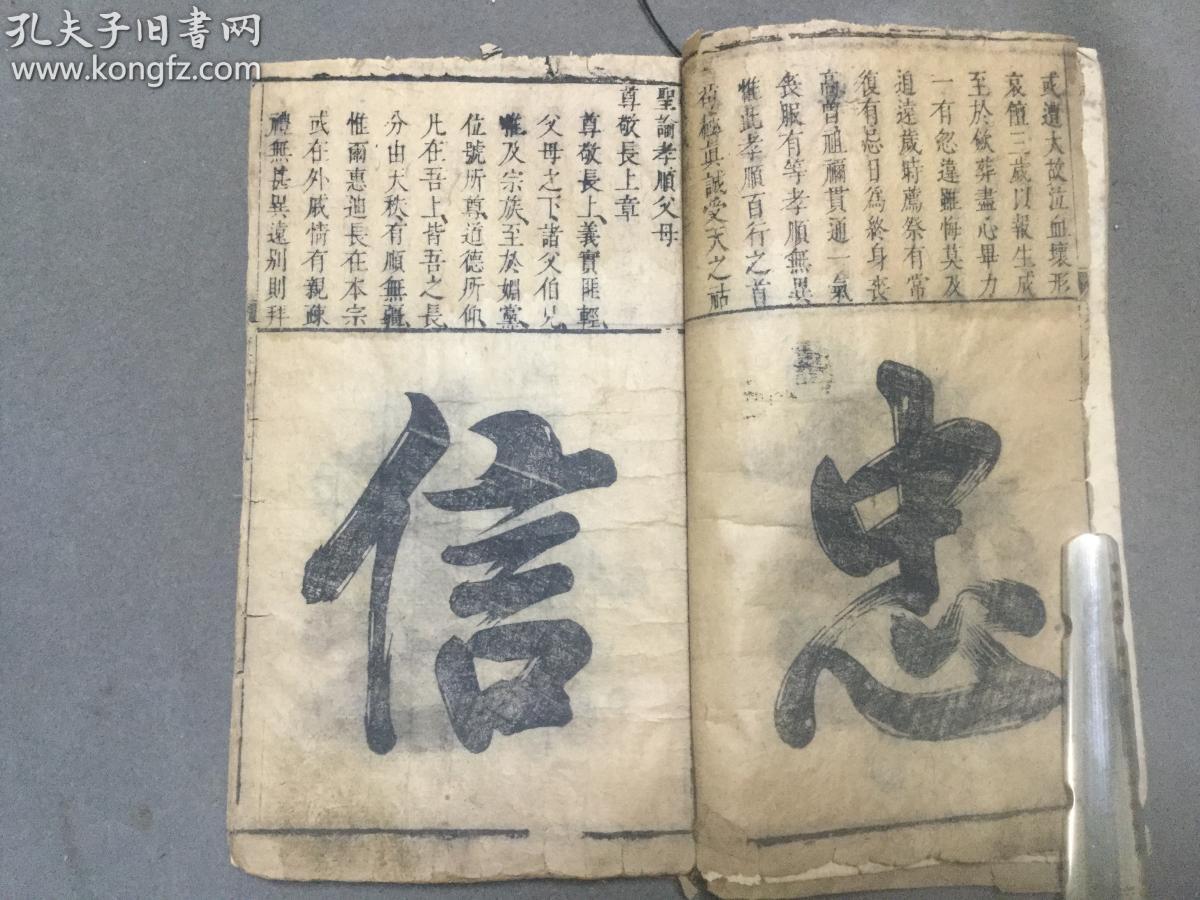 孔夫子旧书网
www.kongfz.com
或遭大故泣血壞形
哀饘三歲以報生成
至於飲葬盡心畢力
一有忽違雖悔莫及
追遠歲時薦祭有常
復有忌日爲終身喪
高曾祖禰貫通一氣
喪服有等孝順無異
惟此孝順百行之首
極眞誠受天之祜
忠
聖諭孝順父母
尊敬長上章
尊敬長上義實匪輕
父母之下諸父伯兄
惟及宗族至於姻黨
位號所尊道德所仰
凡在吾上皆吾之長
分由天秩有順無彊
惟爾惠迪長在本宗
或在外戚情有親疎
禮無甚異遠别則拜
信